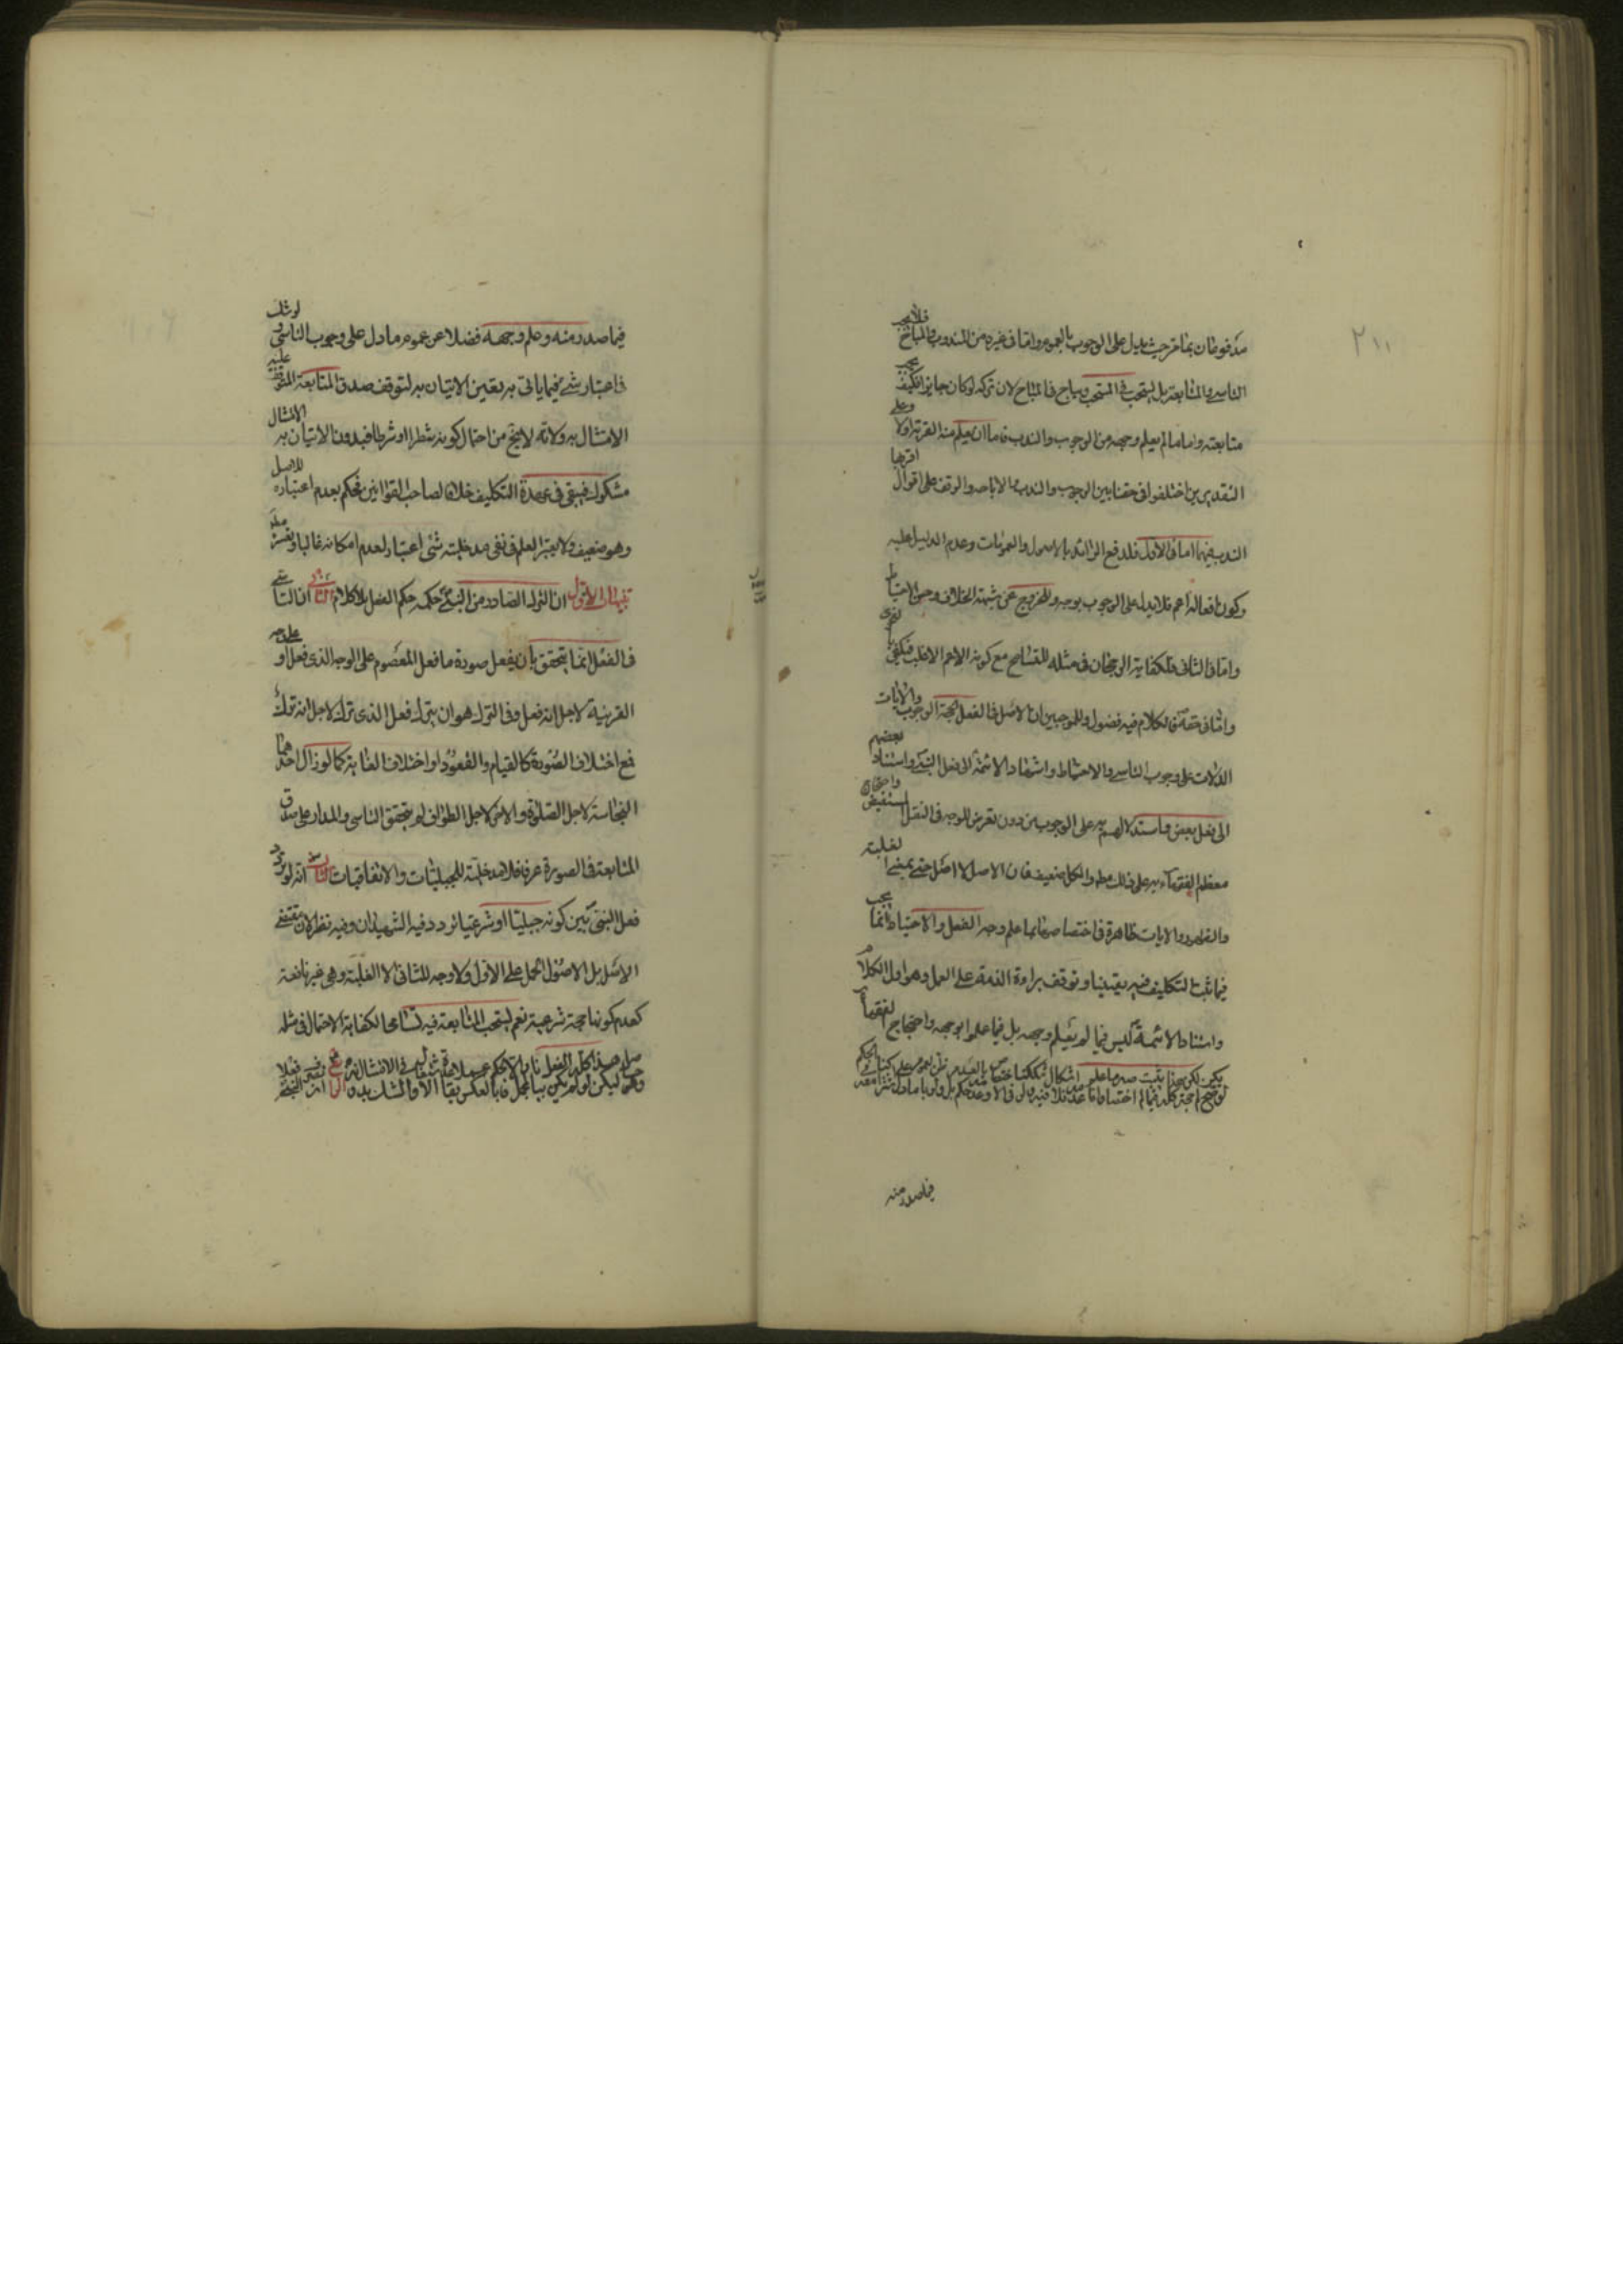 ٢١١
مدفوعان بما مر حيث يدل على الوجوب بالعموم واما في غيره من المندوب والمباح فلا يجب
التاسي والمتابعة بل يستحب في المستحب ويباح في المباح لان تركه لو كان جايزا فكيف يجب
متابعته واما ما لم يعلم وجهه من الوجوب والندب فاما ان يعلم منه القربة او لا وعلى
التقديرين اختلفوا في حقنا بين الوجوب والندب والاباحه والوقف على اقوال اقربها
الندب فيهما اما في الاول فلدفع الزائد بالاصول والعمومات وعدم الدليل عليه
وكون افعاله اعم فلا يدل على الوجوب بوجه وللخروج عن شبهة الخلاف وحسن الاحتياط
واما في الثاني فلكفاية الرجحان في مثله للتسامح مع كونه الاعم الاغلب فيكفي
واما في حقه فالكلام فيه فضول وللموجبين ان الاصل في الفعل حجة الوجوب والايات
الدالات على وجوب التاسي والاحتياط واستناد الائمة الى فعل النبي واستناد بعضهم
الى فعل بعض واستدلالهم به على الوجوب من دون تعرض للوجه في النقل المستفيض واحتجاج
معظم الفقهاء به على ذلك مطلقا والكل ضعيف فان الاصل لا اصل حتى بمعنى الغلبة
والظهور والايات ظاهرة في اختصاصها بما علم وجه الفعل والاحتياط انما يجب
فيما ثبت التكليف فيه يقينيا وتوقف براءة الذمة على العمل وهو اول الكلام
واستناد الائمة ليس فيما لم يعلم وجهه بل فيما علموا بوجهه واحتجاج الفقهاء
فيما صدر منه
فيما صدر منه وعلم وجهه فضلا عن عموم ما دل على وجوب التاسي ولو شك
في اعتبار شي فيما ياتي به يقين الاتيان به لتوقف صدق المتابعة المتوقف عليه
الامتثال به ولانه لا يخ من احتمال كونه شطرا او شرطا فبدون الاتيان به الامتثال
مشكوك فيبقى في عهدة التكليف خلافا لصاحب القوانين فحكم بعدم اعتباره للاصل
وهو ضعيف ولا يعتبر العلم في نفي مدخلية شئ اعتبار لعدم امكانه غالبا
تنبيهات الاول ان الترك الصادر من النبي حكمه حكم الفعل بلا كلام الثاني ان التاسي
في الفعل انما يتحقق بان يفعل صورة ما فعل المعصوم على الوجه الذي فعل او على وجه
القربية لاجل انه فعل وفي الترك هو ان يترك فعل الذي ترك لاجل انه ترك
فمع اختلاف الصورة كالقيام والقعود او اختلاف الغاية كما لو زال احدهما
النجاسة لاجل الصلوة والاخر لاجل الطواف لم يتحقق التاسي والمدار على صدق
المتابعة في الصورة عرفا فلا مدخلية للجبليات والاتفاقيات الثالث انه لو تردد
فعل النبي بين كونه جبليا او شرعيا تردد فيه الشهيدان وفيه نظر لان مقتضى
الاصل بل الاصول الحمل على الاول ولا وجه للثاني الا الغلبة وهي غير نافعة
لعدم كونها حجة شرعية نعم يستحب المتابعة فيه تسامحا لكفاية الاحتمال في مثله